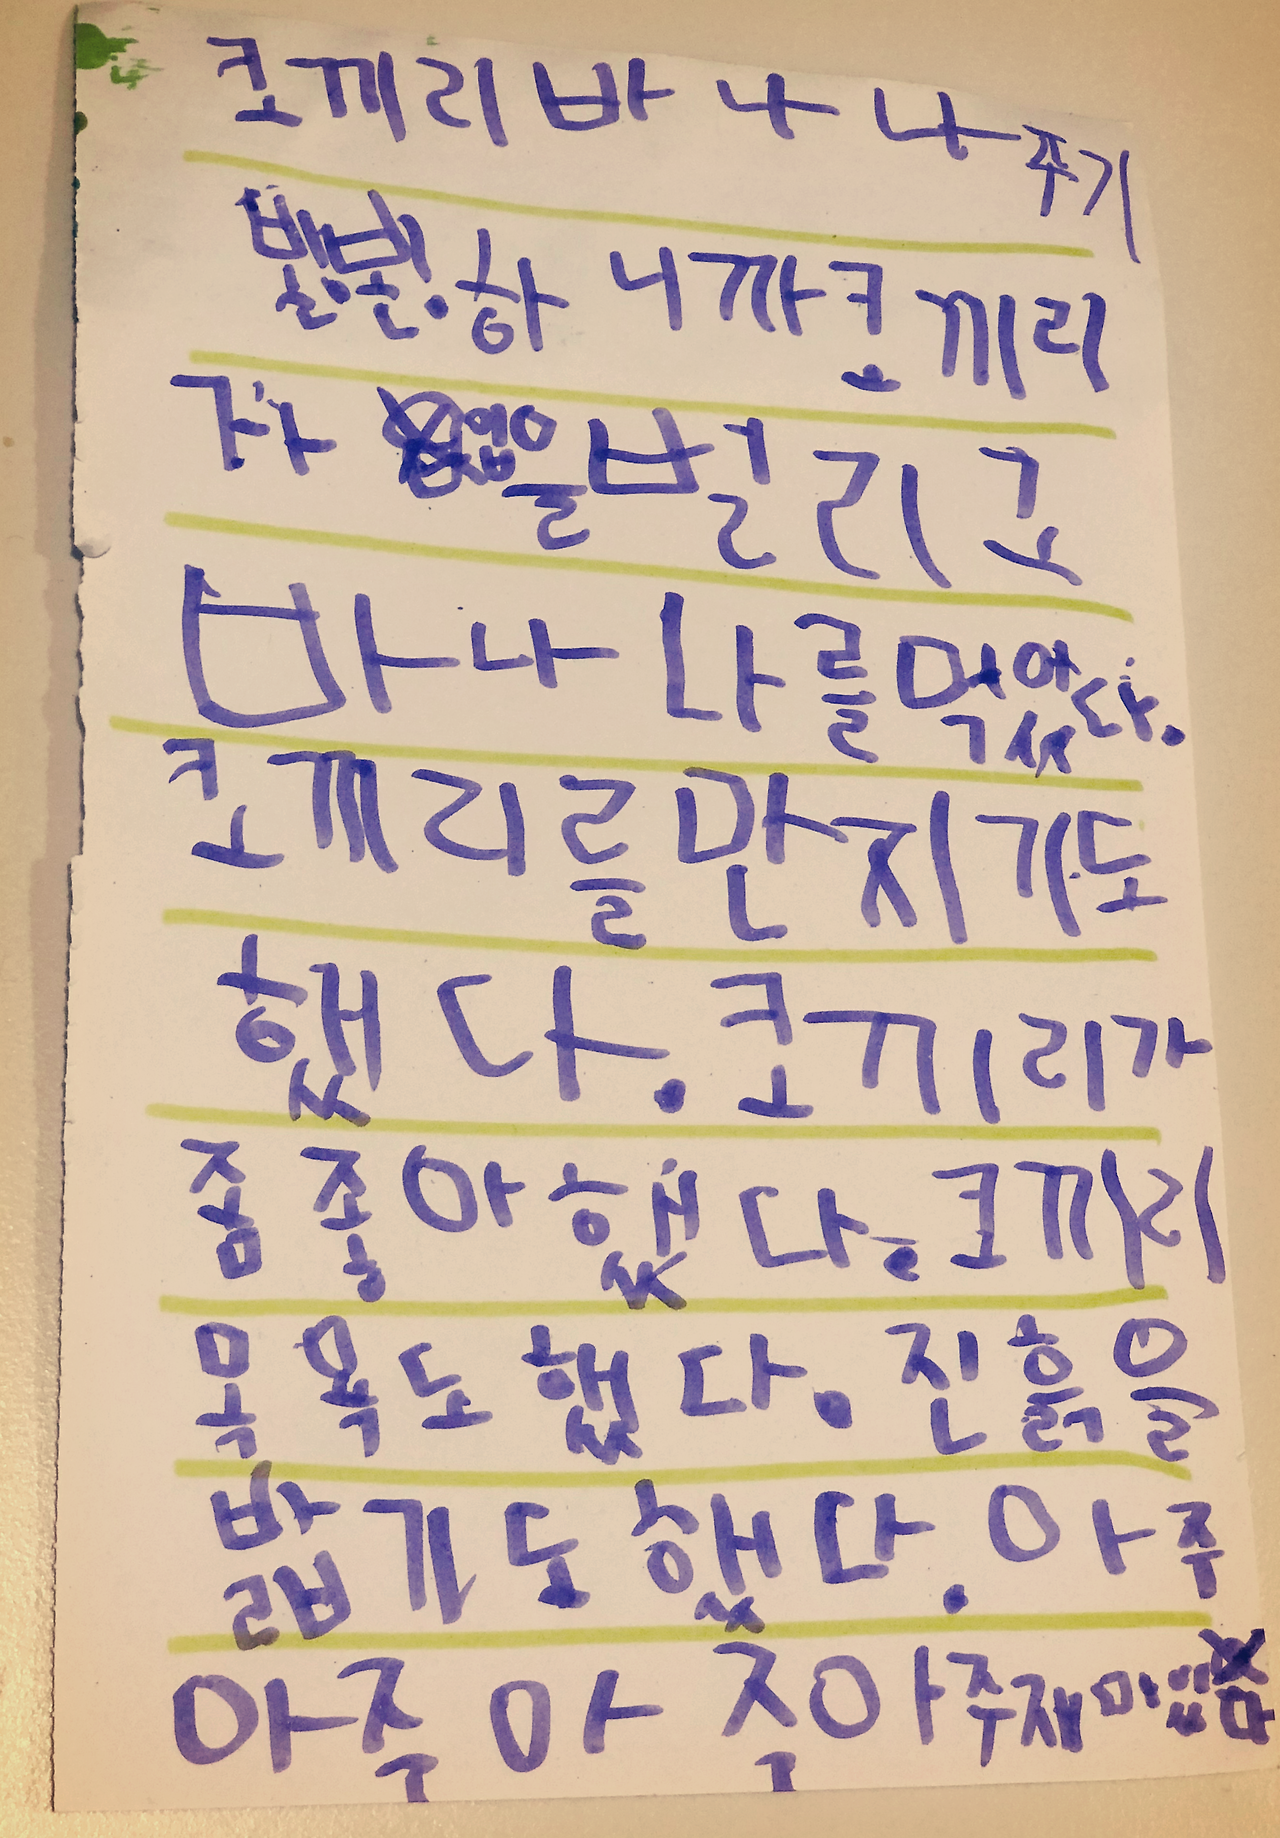 코끼리 바나나 주기
발발. 하니까 코끼리
가 을 벌리고
바나나를 먹었다.
코끼리를 만지기도
했다. 코끼리가
좀 좋아했다. 코끼리
목욕도 했다. 진흙을
밟기도 했다. 아주
아주 아주 아주 재미